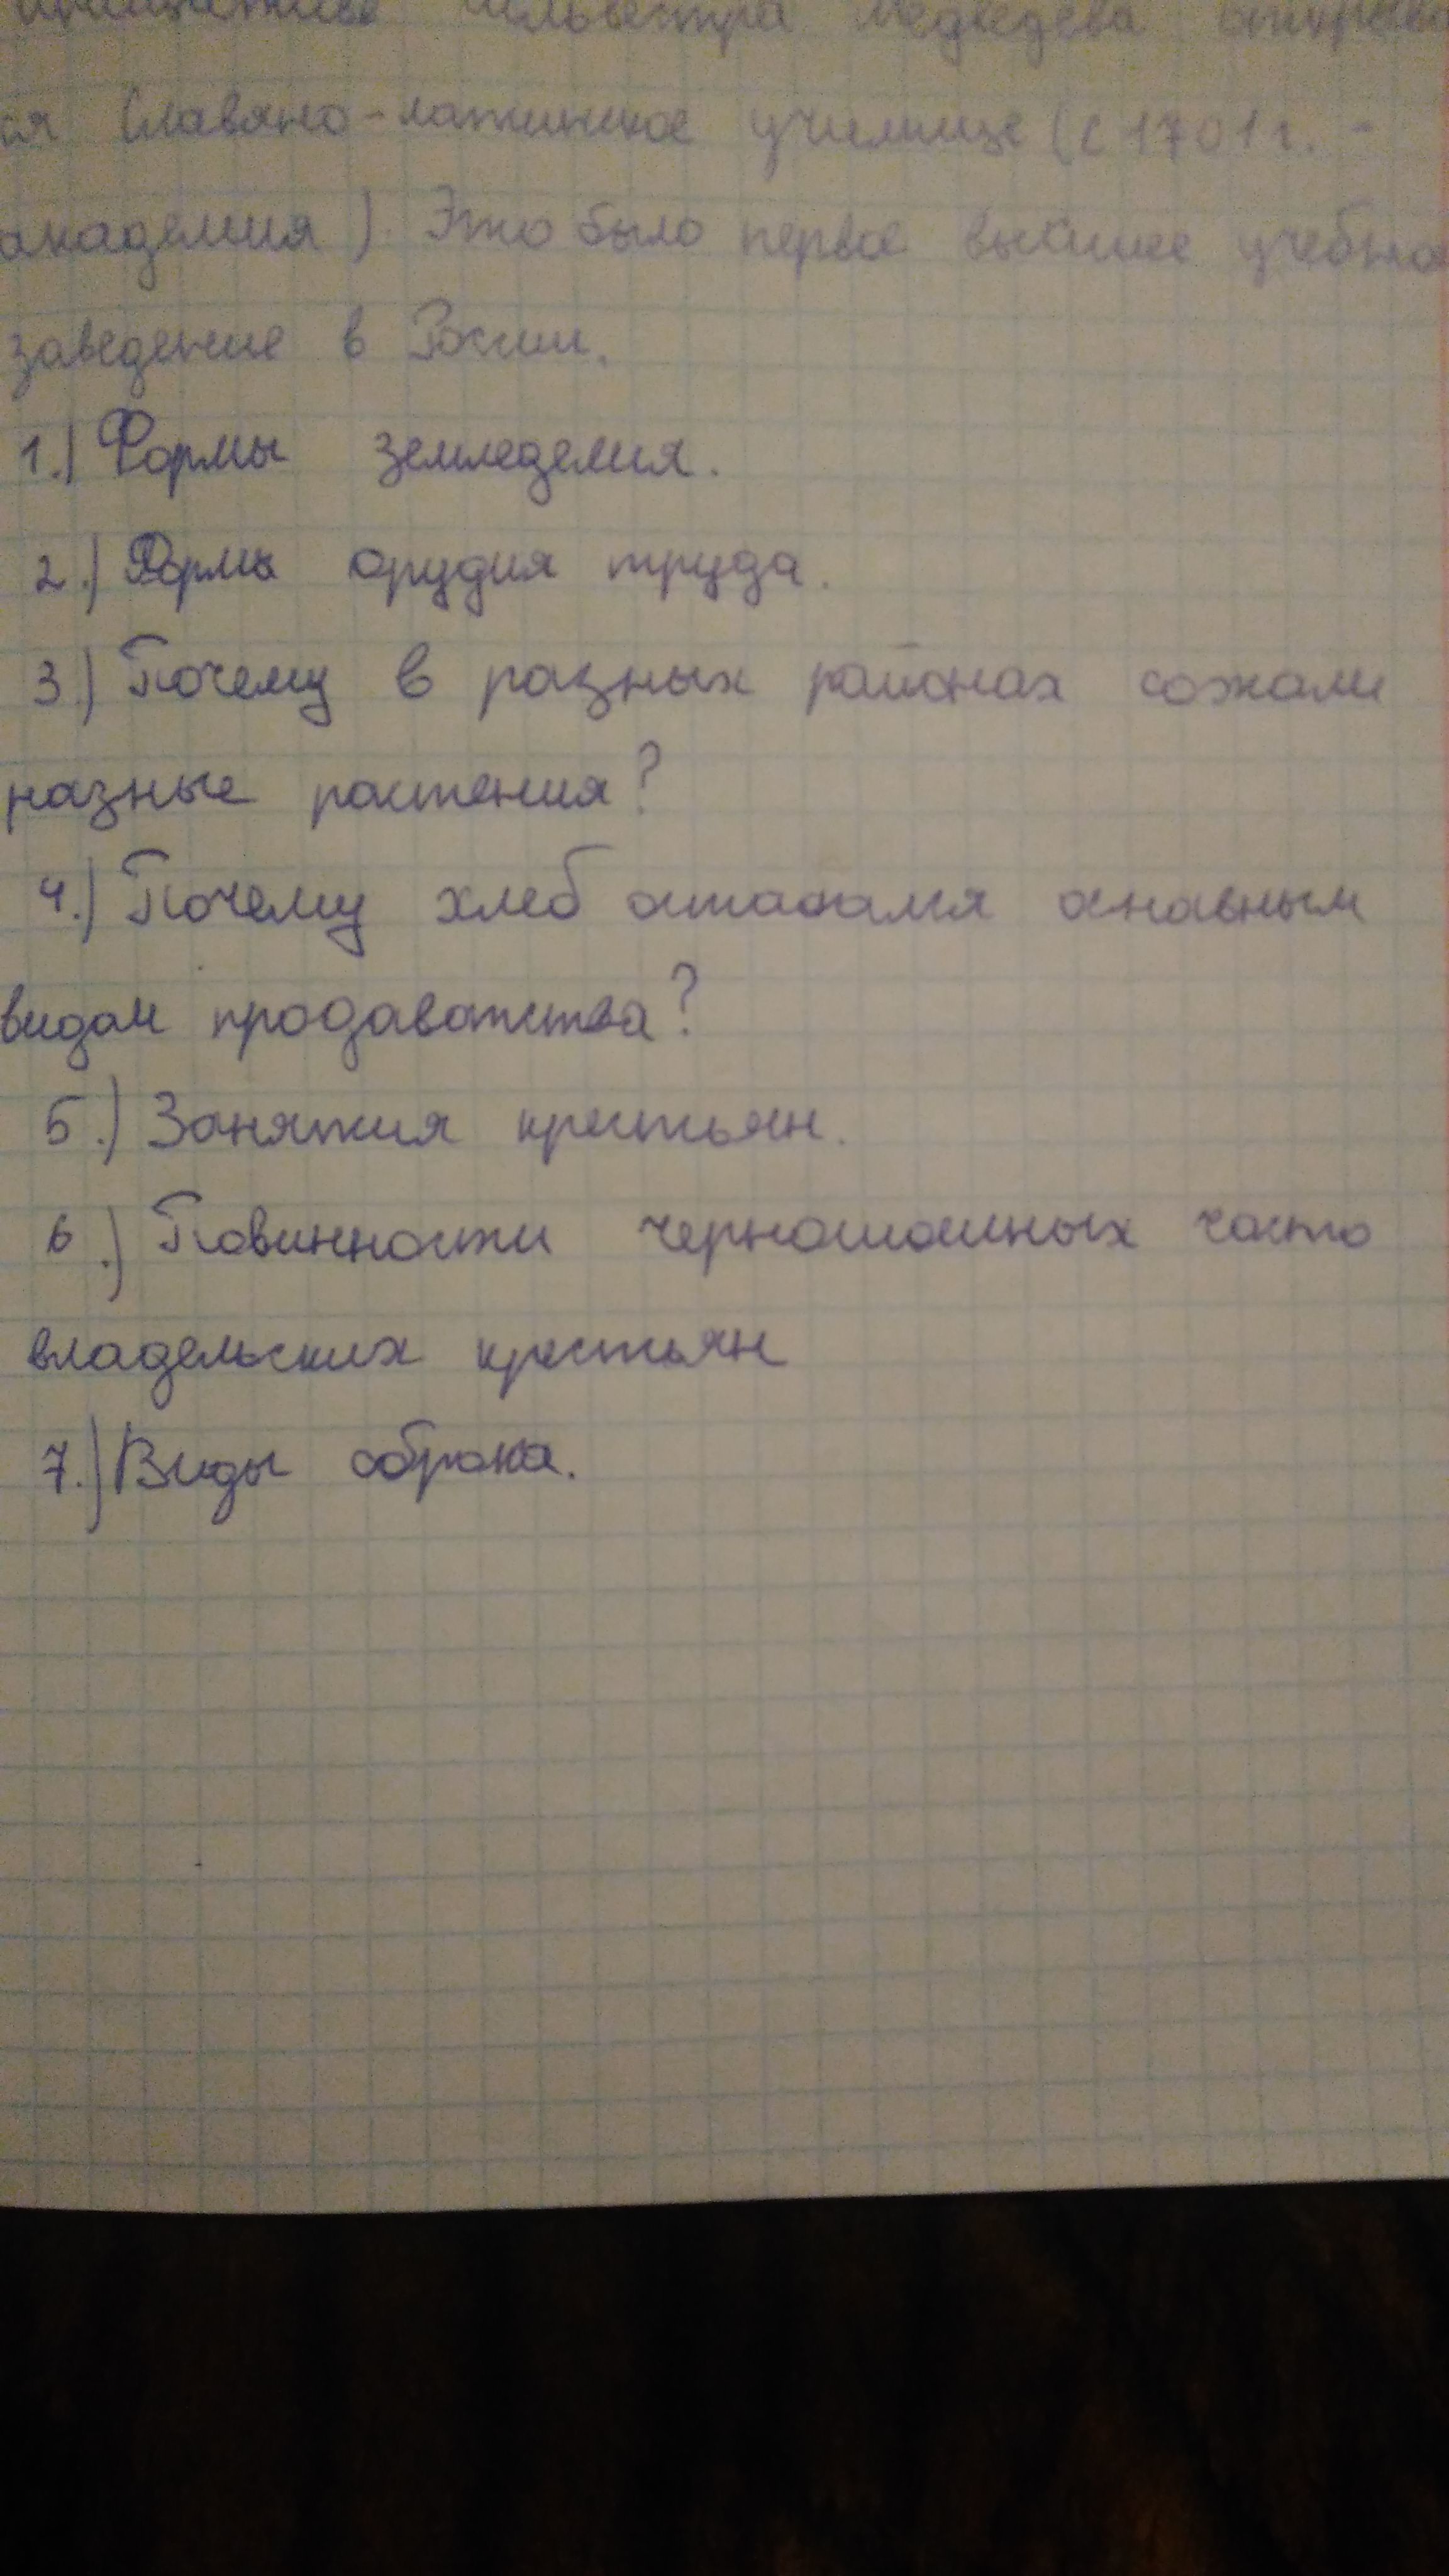 Сильвестра Медведева
ся Славяно-латинское училище (с 1701 г. -
академия). Это было первое высшее учебно
заведение в России.
1.) Формы земледелия.
2.) Формы орудия труда.
3.) Почему в разных районах сожали
разные растения?
4.) Почему хлеб оставался оснавным
видом продаватства?
5.) Занятия крестьян.
6.) Повинности черносошных часто
владельских крестьян
7.) Виды оброка.